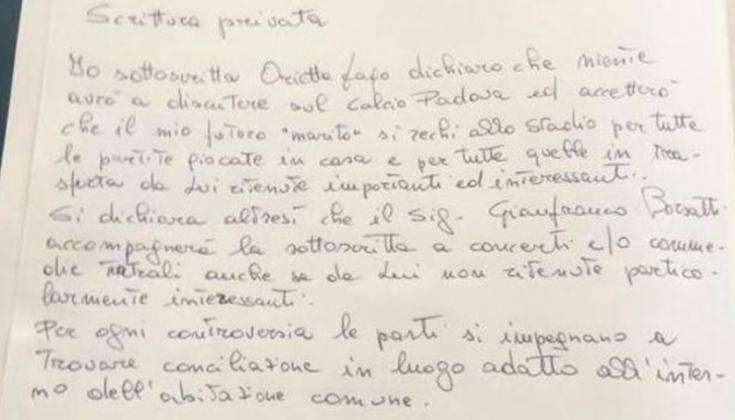 Scrittura privata
Io sottoscritta Orietta Lafo dichiaro che niente
avrò a discutere sul Calcio Padova ed accetterò
che il mio futuro "marito" si rechi allo stadio per tutte
le partite giocate in casa e per tutte quelle in tra-
sferta da Lui ritenute importanti ed interessanti.
Si dichiara altresì che il Sig. Gianfranco Borsatti
accompagnerà la sottoscritta a concerti e/o comme-
die teatrali anche se da Lui non ritenute partico-
larmente interessanti.
Per ogni controversia le parti si impegnano a
trovare conciliazione in luogo adatto all'inter-
no dell'abitazione comune.